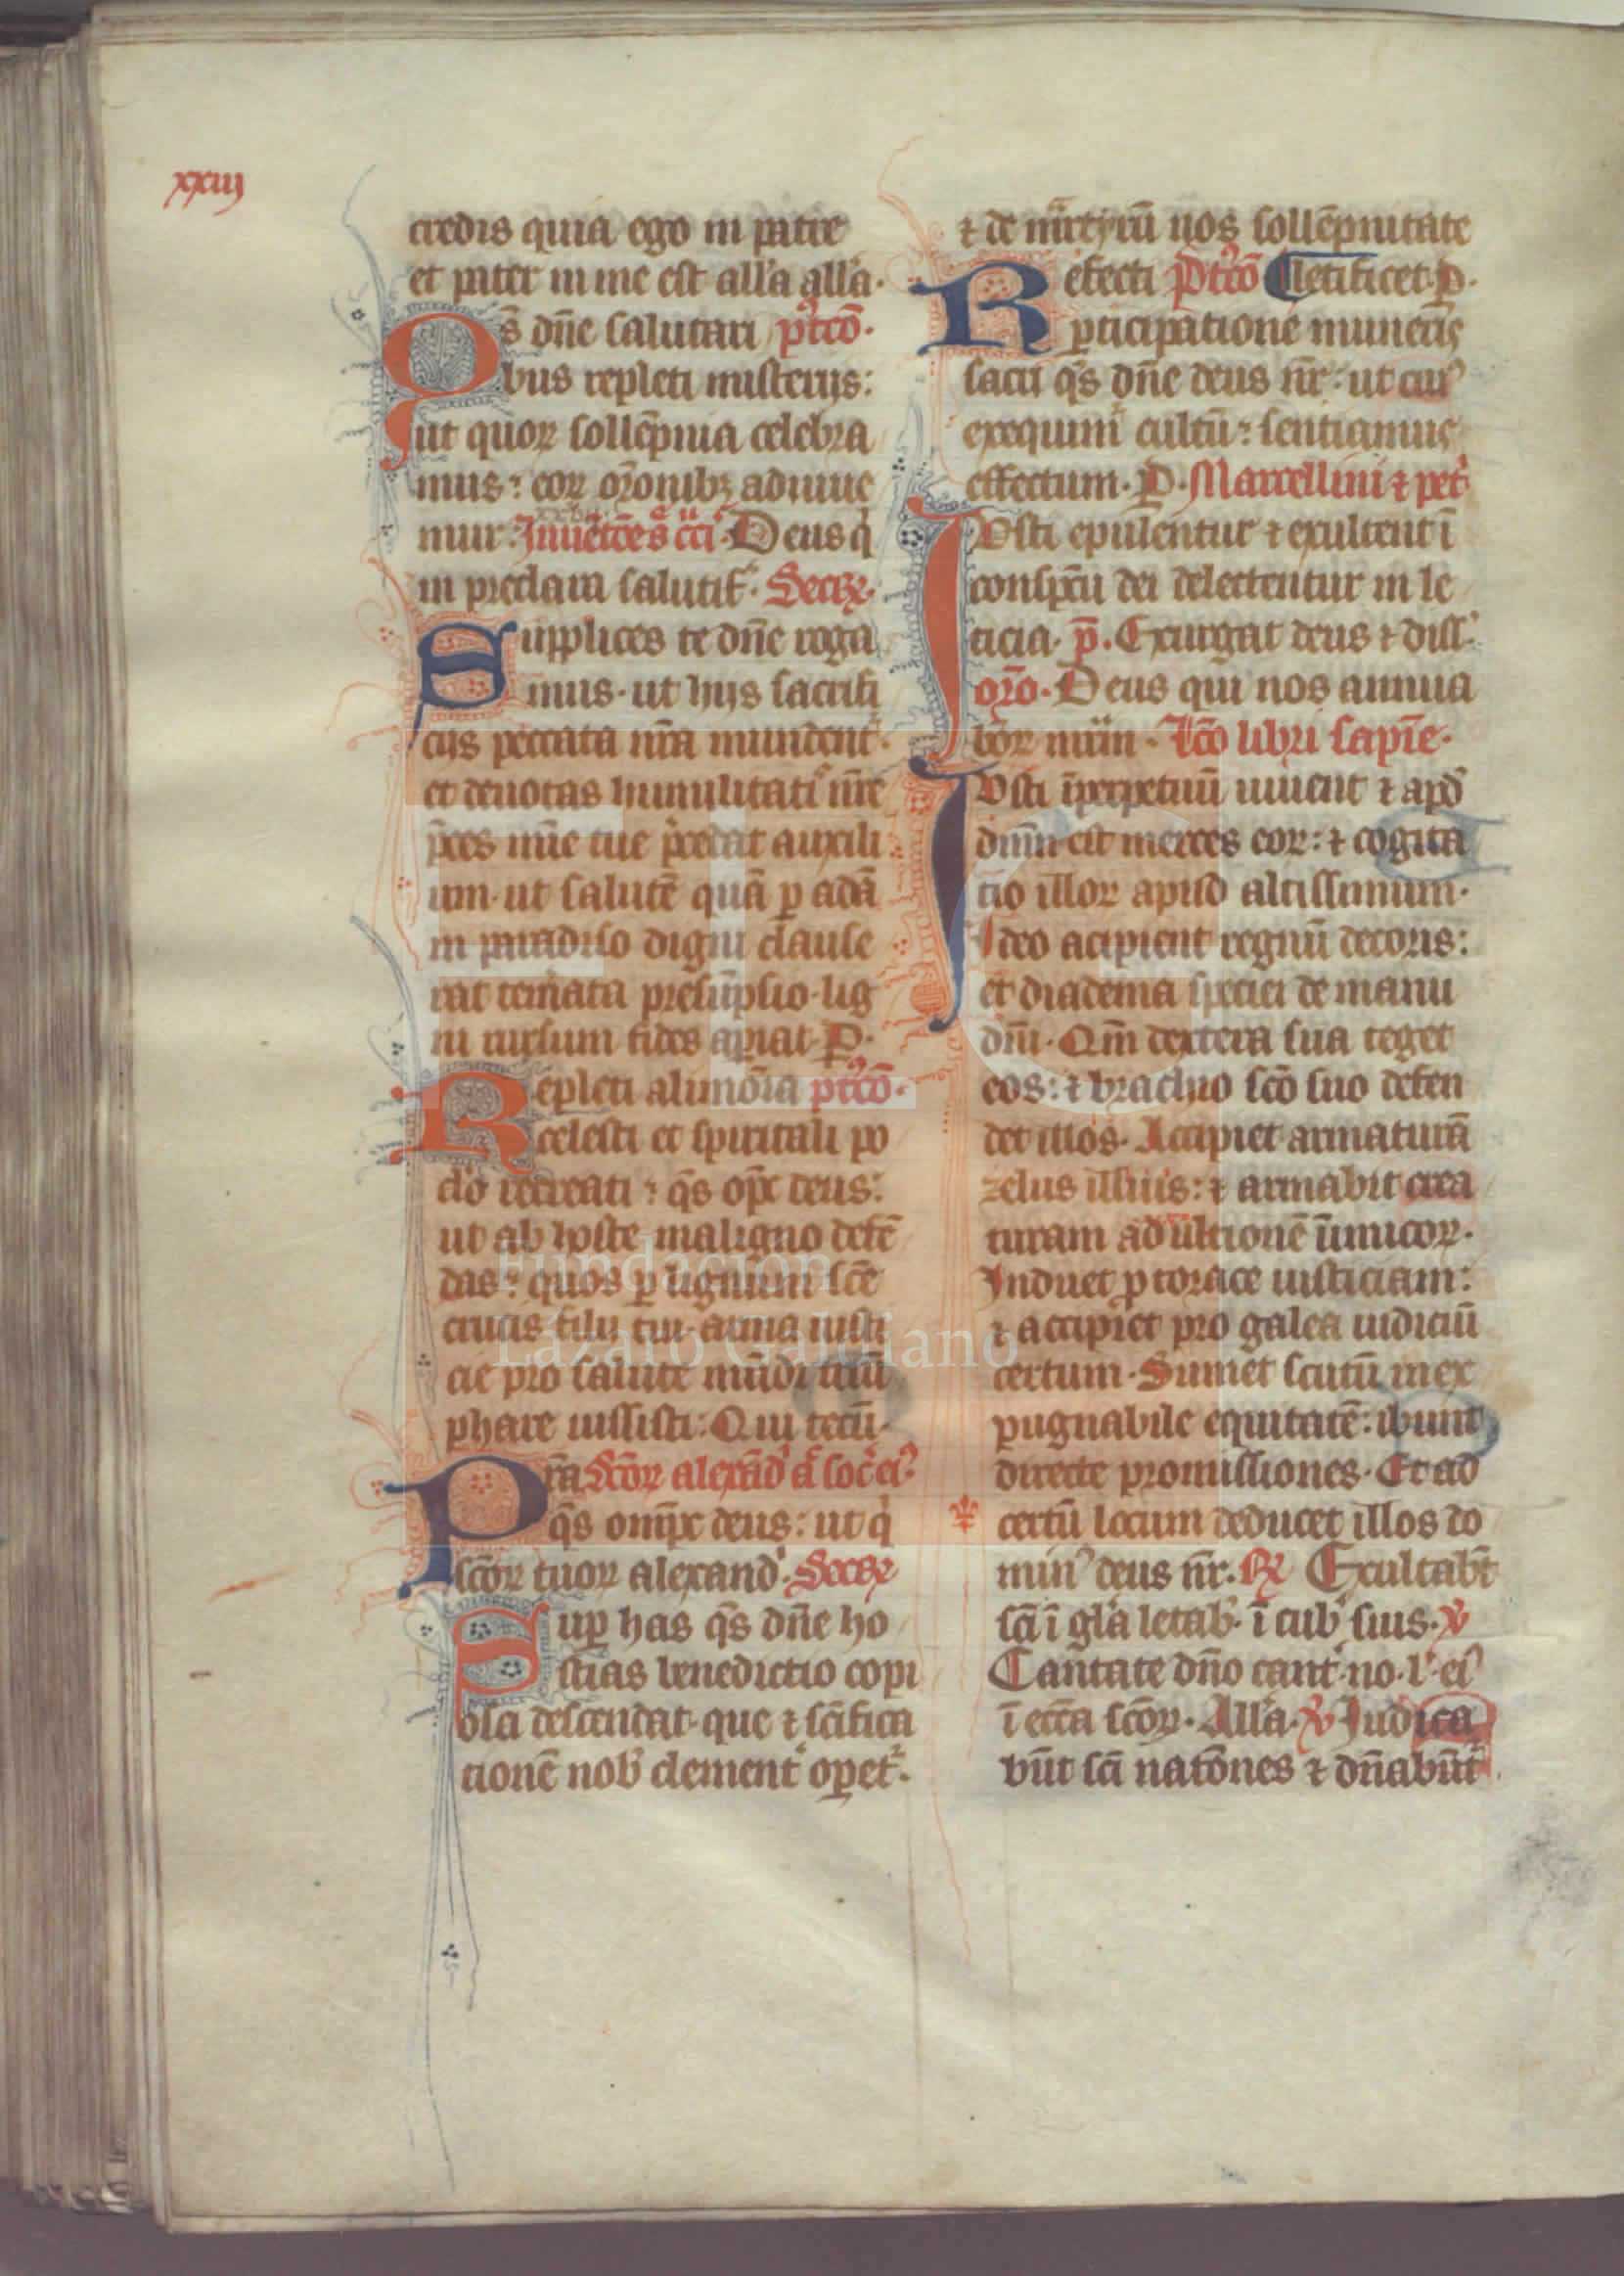 xxiij
credis quia ego in patre
et pater in me est all'a all'a.
Qs dñe salutari pt'cõ.
bus repleti misterijs:
ut quoꝝ sollẽpnia celebra
mus: eoꝝ or̃onibꝫ adiuue
mur. Inuẽtiõe s̃ c̃ci. Deus q̇
in preclara salutif̃. Secr̃.
Supplices te dñe roga
mus. ut hijs sacrifi
cijs peccata nr̃a mundent̃.
et deuotas humilitati nr̃e
p̃ces mĩe tue p̃cedat auxili
um. ut salutẽ quã ꝑ adã
in paradiso digni clause
rat tem̃ata presũpsio. lig
ni rursum fides aperiat. P.
Repleti alimõia pt'cõ.
celesti et spiritali po
c̃lo recreati: qs̃ opc̃ deus:
ut ab hoste maligno defẽ
das: quos ꝑ lignum sc̃e
crucis filij tui. arma iusti
cie pro salute mũdi triũ
phare iussisti. Qui tecũ.
Pr̃a Sc̃oꝝ alexãd' ⁊ soc' ei'.
qs̃ omp̃c deus: ut q̇
sc̃oꝝ tuoꝝ alexand'. Secr̃
Suꝑ has qs̃ dñe ho
stias benedictio copi
osa descendat. que ⁊ sc̃ifica
tionẽ nob' clement' oꝑet̃.
⁊ de mr̃tyrũ nos sollẽpnitate
Refecti Pt'cõ letificet. P.
ꝑticipatione muneris
sacri qs̃ dñe deus nr̃: ut cui'
exequim' cultũ: sentiamus
effectum. P. Marcellini ⁊ pet'
Iusti epulentur ⁊ exultent ĩ
conspc̃u dei delectentur in le
ticia. p̃. Exurgat deus ⁊ diss'.
or̃o. Deus qui nos annua
bõꝝ mũn. Lc̃o libri sapĩe.
Iusti ĩperpetuũ uiuent ⁊ apd'
dñm est merces eoꝝ: ⁊ cogita
tio illoꝝ apud altissimum.
Ideo accipient regnũ decoris:
et diadema speciei de manu
dñi. Qm̃ dextera sua teget
eos: ⁊ brachio sc̃o suo defen
det illos. Accipiet armaturã
zelus illius: ⁊ armabit crea
turam ad ultionẽ ĩimicoꝝ.
Induet ꝓ torace iusticiam:
⁊ accipiet pro galea iudiciũ
certum. Sumet scutũ inex
pugnabile equitatẽ: ibunt
directe promissiones. Et ad
certũ locum deducet illos do
min' deus nr̃. R̃ Exultabt̃
sc̃i ĩ gl'a letab'. ĩ cub' suis. V
Cantate dño cant'. no. l' ei'
ĩ ecc̃a sc̃oꝝ. All'a. V Iudica
bũt sc̃i natõnes ⁊ dñabũt̃
FLG
Fundación
Lázaro Galdiano